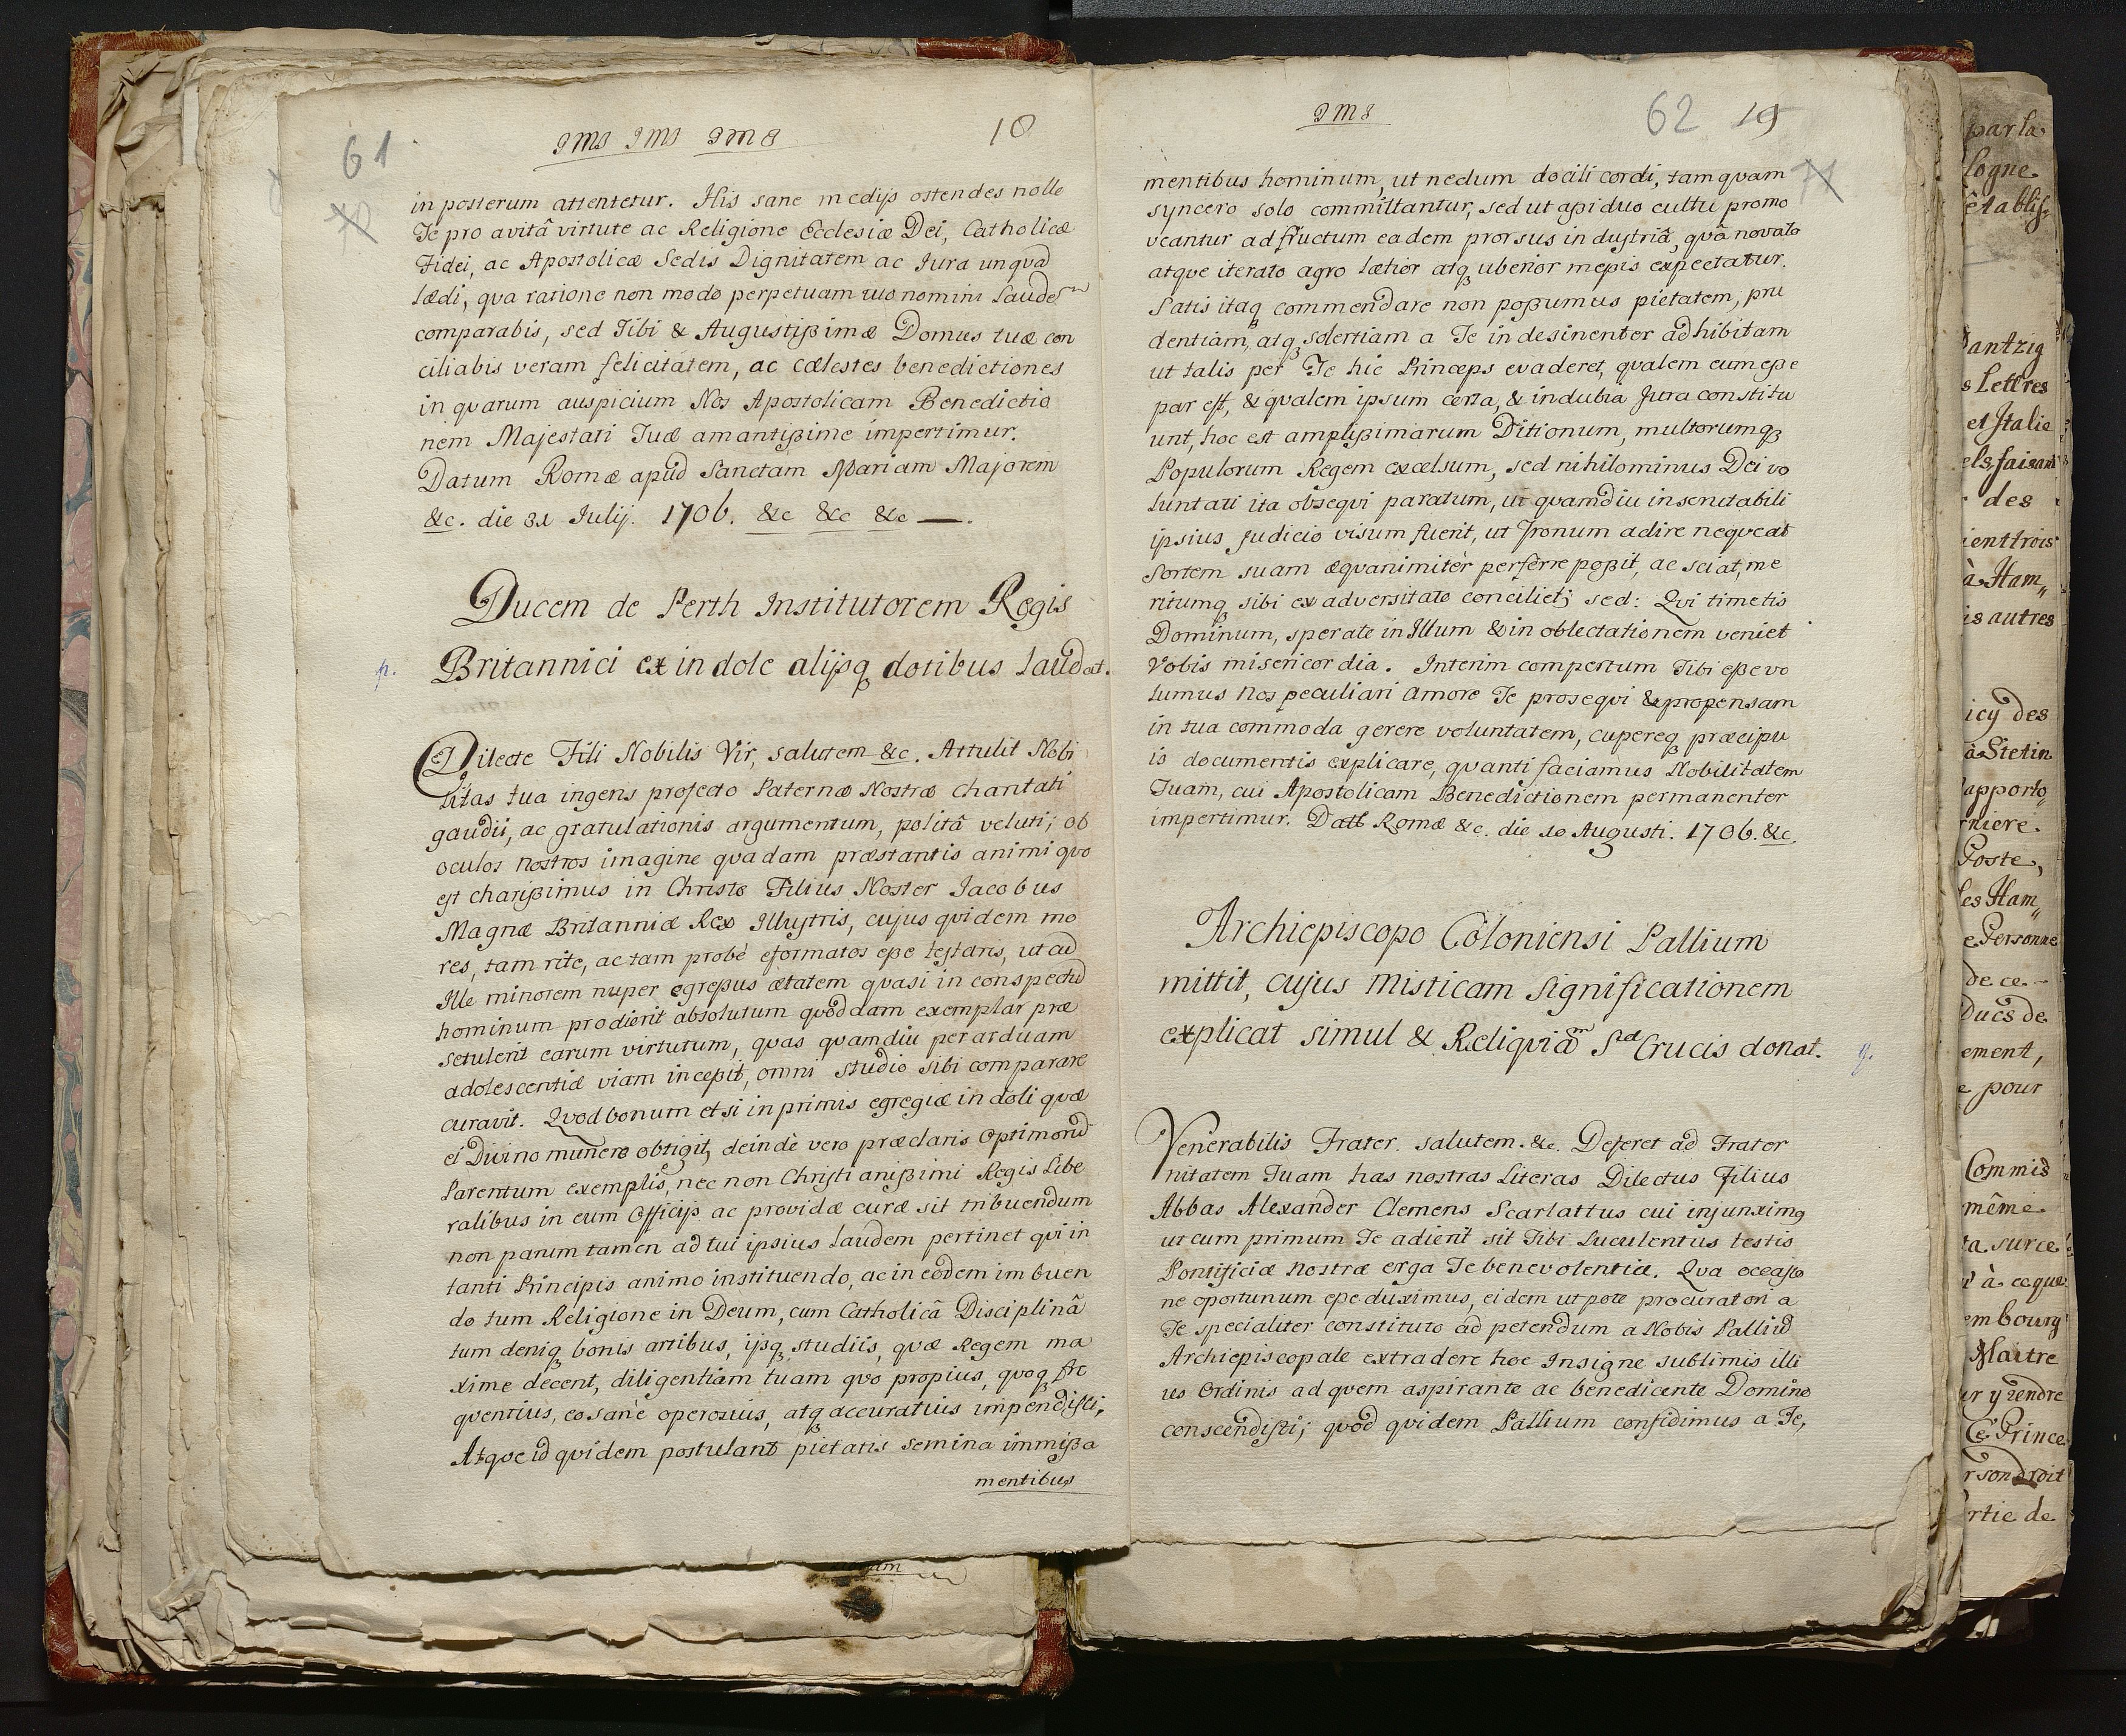 61
18
70
in posterum attentetur. His sane medijs ostendes nolle
Te pro avitâ virtute ac Religione Ecclesiæ Dei, Catholicæ
Fidei, ac Apostolicæ Sedis Dignitatem ac Jura unquã
lædi, qua ratione non modo perpetuam tuo nomini laudem
comparabis, sed Tibi & Augustißimæ Domus tuæ con
ciliabis veram felicitatem, ac cælestes benedictiones
in quarum auspicium Nos Apostolicam Benedictio
nem Majestati Tuæ amantißime impertimur.
Datum Romæ apud Sanctam Mariam Majorem
&c. die 31 Julij. 1706. &c &c &c —.
Ducem de Perth Institutorem Regis
Britannici ex indole alijsq dotibus laudat.
Dilecte Fili Nobilis Vir, salutem &c. Attulit Nobi
litas tua ingens profecto Paternæ Nostræ charitati
gaudii, ac gratulationis argumentum, politâ veluti, ob
oculos nostros imagine quadam præstantis animi quo
est charißimus in Christo Filius Noster Jacobus
Magnæ Britanniæ Rex Illustris, cujus quidem mo
res, tam rite, ac tam probè eformatos eße testaris, ut cũ
Ille minorem nuper egreßus ætatem quasi in conspectũ
hominum prodierit absolutum quoddam exemplar præ
setulerit earum virtutum, quas quamdiu per arduam
adolescentiæ viam incepit, omni studio sibi comparare
curavit. Qvod bonum etsi in primis egregiæ indoli quæ
ei Divino munere obtigit, deindè vero præclaris Optimorũ
Parentum exemplis, nec non Christianißimi Regis Libe
ralibus in eum Officijs ac providæ curæ sit tribuendum
non parum tamen ad tui ipsius laudem pertinet qui in
tanti Principis animo instituendo, ac in eodem imbuen
do tum Religione in Deum, cum Catholicâ Disciplinâ
tum deniq bonis artibus, ijsq studiis, quæ Regem ma
xime decent, diligentiam tuam quo propius, quoq fre
quentius, eo sanè operosius, atq accuratius impendisti.
Atque id quidem postulant pietatis semina immißa
mentibus
62
19
71
mentibus hominum, ut nedum docili cordi, tamquam
syncero solo committantur, sed ut aßiduo cultu promo
veantur ad fructum eadem prorsus industriâ, quâ novato
atque iterato agro lætior atq uberior meßis expectatur.
Satis itaq commendare non poßumus pietatem, pru
dentiam, atq solertiam a Te indesinenter adhibitam
ut talis per Te hic Princeps evaderet, qualem eum eße
par est, & qualem ipsum certa, & indubia Jura constitu
unt, hoc est amplißimarum Ditionum, multorumq
Populorum Regem excelsum, sed nihilominus Dei vo
luntati ita obsequi paratum, ut quamdiu inscrutabili
ipsius judicio visum fuerit, ut Tronum adire nequeat
Sortem suam æquanimitèr perferre poßit, ac sciat, me
ritumq sibi ex adversitate conciliet; sed: Qvi timetis
Dominum, sperate in Illum & in oblectationem veniet
Vobis misericordia. Interim compertum Tibi eße vo
lumus nos peculiari amore Te prosequi & propensam
in tua commoda gerere voluntatem, cupereq præcipu
is documentis explicare, quanti faciamus Nobilitatem
Tuam, cui Apostolicam Benedictionem permanenter
impertimur. Datt Romæ &c. die 10 Augusti. 1706. &c.
Archiepiscopo Coloniensi Pallium
mittit, cujus misticam significationem
explicat simul & Reliquiam Stæ Crucis donat.
Venerabilis Frater. salutem. &c. Deferet ad Frater
nitatem Tuam has nostras Literas Dilectus Filius
Abbas Alexander Clemens Scarlattus cui injunximq
ut cum primum Te adierit sit Tibi luculentus testis
Pontificiæ nostræ erga Te benevolentiæ. Qva occasio
ne oportunum eße duximus, eidem utpote procuratori a
Te specialiter constituto ad petendum a Nobis Palliũ
Archiepiscopale extradere hoc Insigne sublimis illi
us Ordinis ad quem aspirante ac benedicente Domino
conscendisti; quod quidem Pallium confidimus a Te,
par la
logne
établis
Dantzig
s Lettres
et Italie
els, faisant
des
ient trois
à Ham„
is autres
icy des
à Stetin
apporto„
rniere.
Poste,
les Ham„
e Personne
de ce
Ducs de
ement,
e pour
Commis
même
ta surce
à ce que
embourg
Maitre
ur y rendre
Ce Prince
r son droit
rtie de